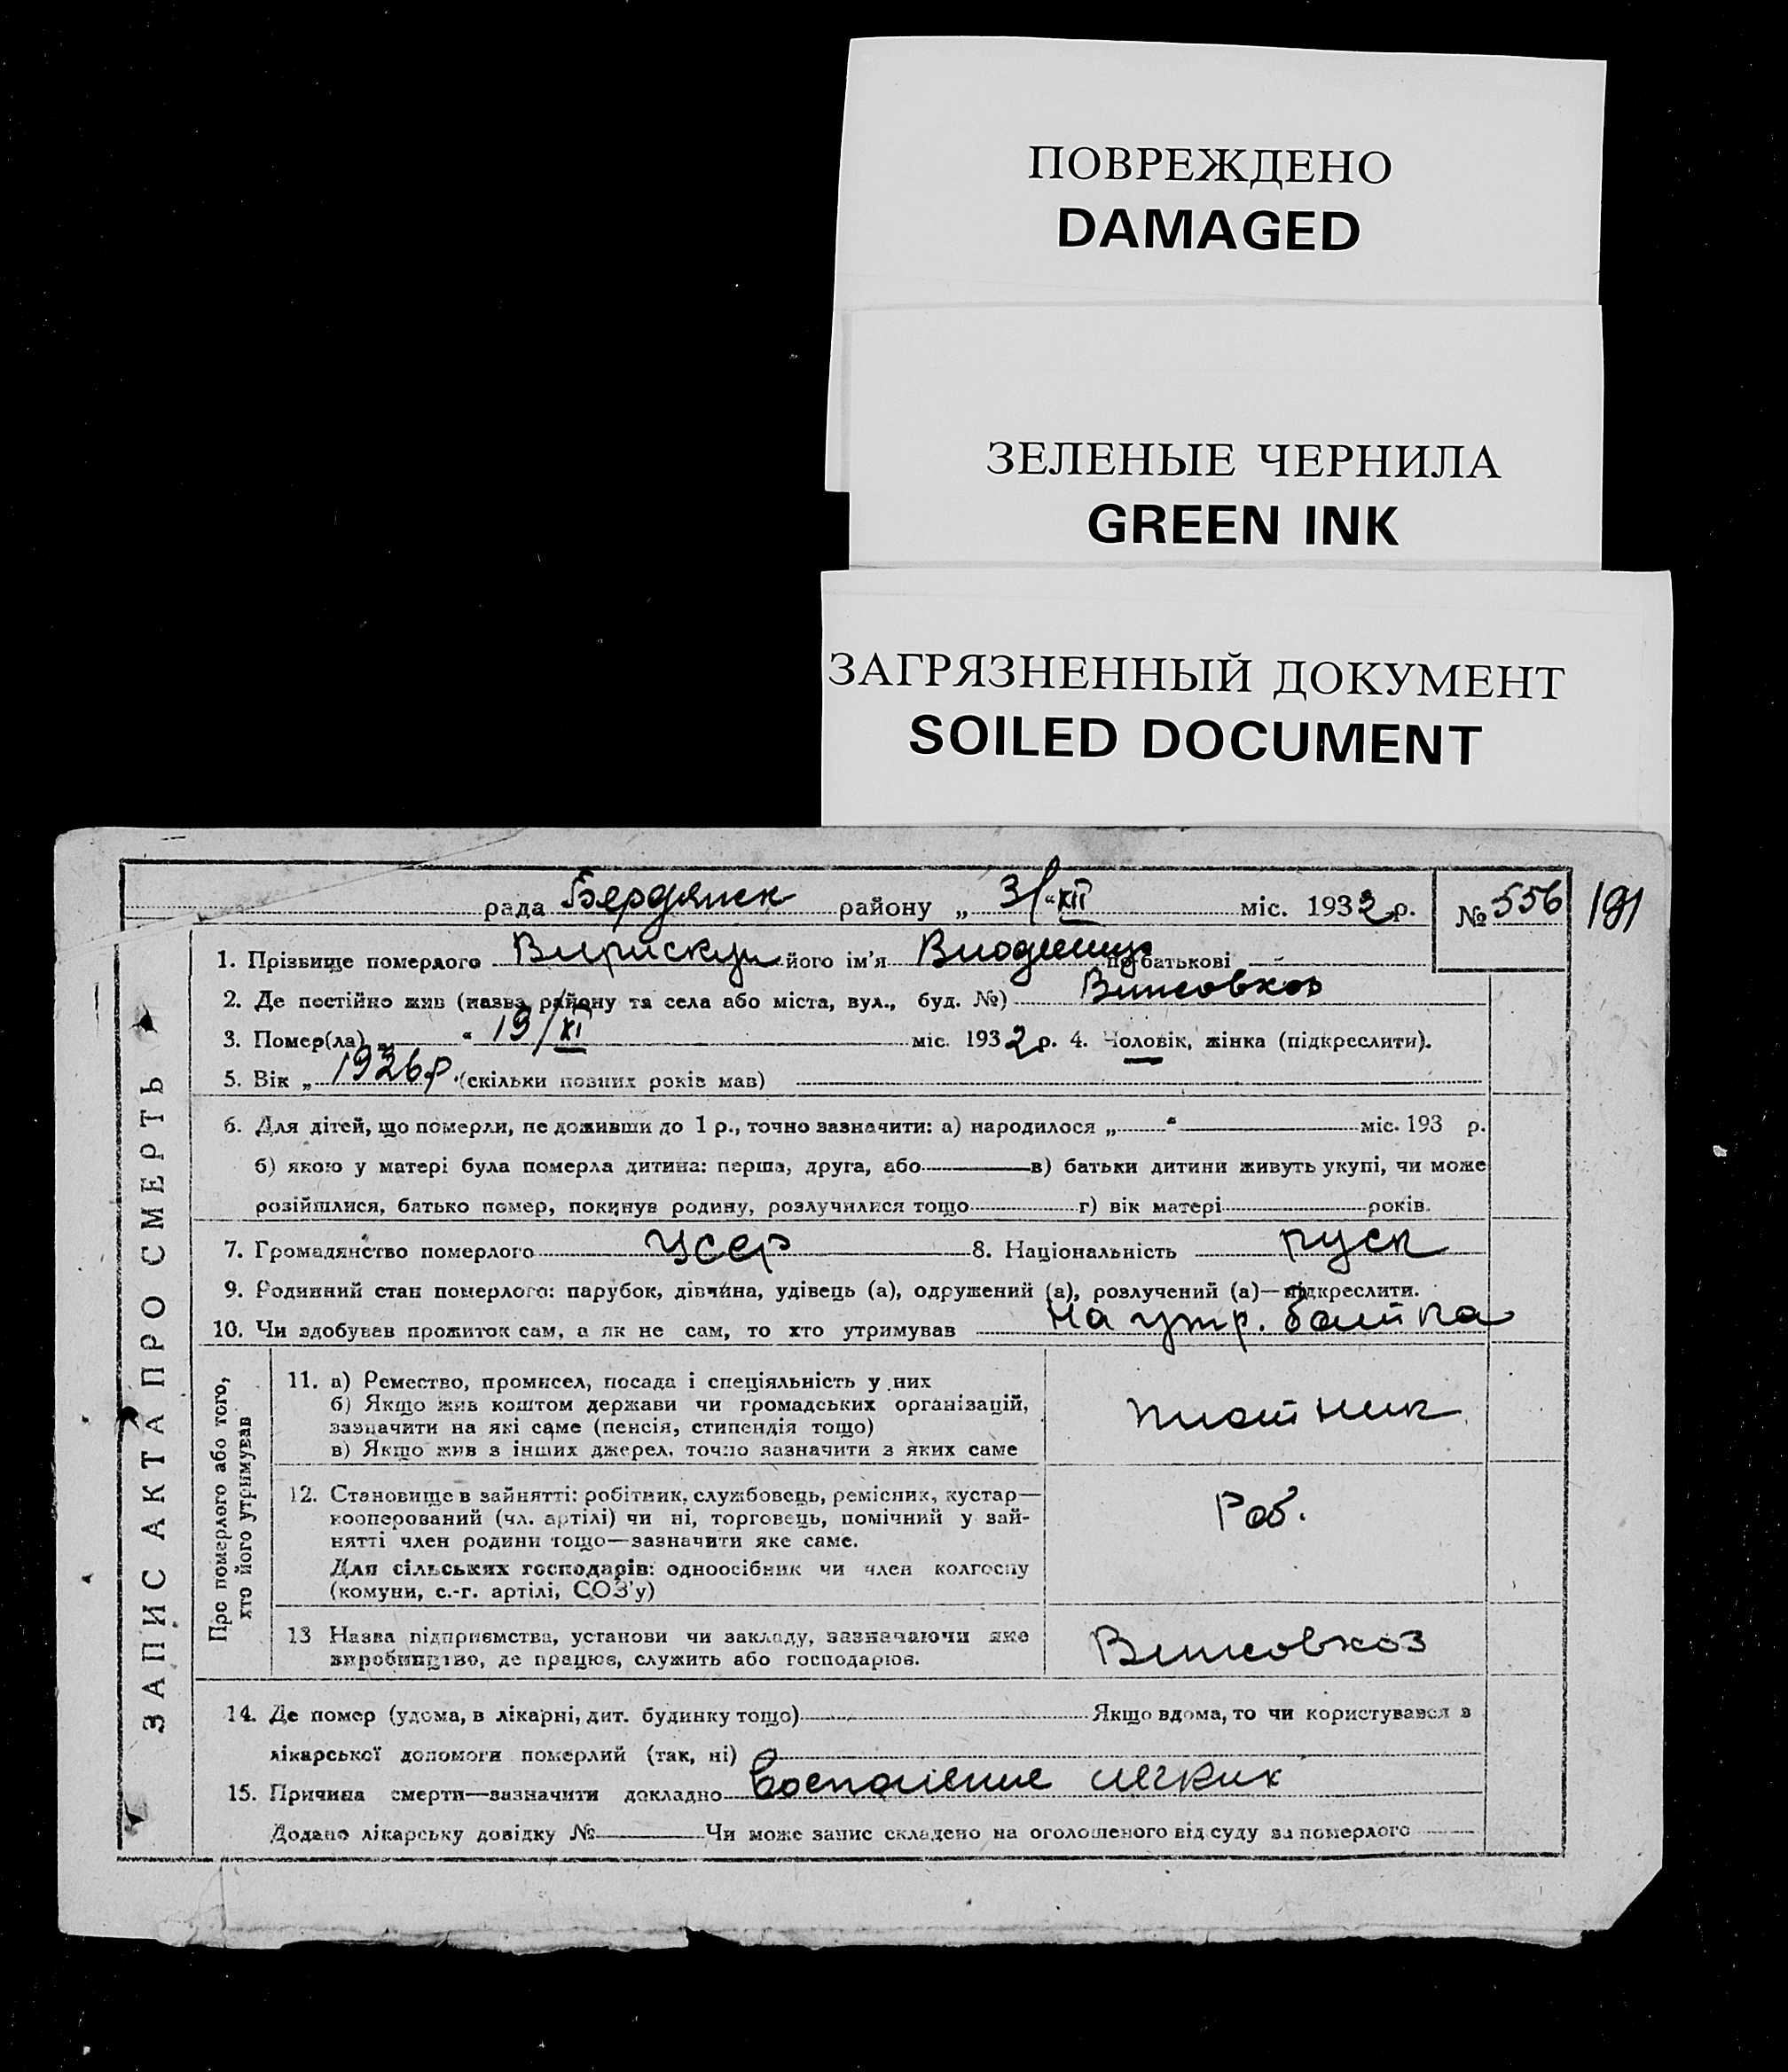 ПОВРЕЖДЕНО
DAMAGED
ЗЕЛЕНЫЕ ЧЕРНИЛА
GREEN INK
ЗАГРЯЗНЕННЫЙ ДОКУМЕНТ
SOILED DOCUMENT
рада Бердянск району „ 31 “ XII міс. 1932 р. № 556 191
1. Прізвище померлого його ім'я по батькові
2. Де постійно жив (назва району та села або міста, вул., буд. №) Винсовхоз
3. Помер(ла) „ “ 19/XI міс. 1932 р. 4. Чоловік, жінка (підкреслити).
5. Вік „ 1926 р. (скільки повних років мав)
6. Для дітей, що померли, не доживши до 1 р., точно зазначити: а) народилося „ “ міс. 193 р.
б) якою у матері була померла дитина: перша, друга, або в) батьки дитини живуть укупі, чи може
розійшлися, батько помер, покинув родину, розлучилися тощо г) вік матері років.
7. Громадянство померлого УССР 8. Національність руск
9. Родинний стан померлого: парубок, дівчина, удівець (а), одружений (а), розлучений (а)—підкреслити.
10. Чи здобував прожиток сам, а як не сам, то хто утримував на утр. батька
ЗАПИС АКТА ПРО СМЕРТЬ
Про померлого або того,
хто його утримував
11. а) Ремество, промисел, посада і спеціяльність у них
б) Якщо жив коштом держави чи громадських організацій,
зазначити на які саме (пенсія, стипендія тощо)
в) Якщо жив з інших джерел, точно зазначити з яких саме
плотник
12. Становище в зайнятті: робітник, службовець, ремісник, кустар—
кооперований (чл. артілі) чи ні, торговець, помічний у зай-
нятті член родини тощо—зазначити яке саме.
Для сільських господарів: одноосібник чи член колгоспу
(комуни, с.-г. артілі, СОЗ'у)
Роб.
13 Назва підприємства, установи чи закладу, зазначаючи яке
виробництво, де працює, служить або господарює.
Винсовхоз
14. Де помер (удома, в лікарні, дит. будинку тощо) Якщо вдома, то чи користувався з
лікарської допомоги померлий (так, ні)
15. Причина смерти—зазначити докладно Воспаление легких
Додано лікарську довідку № Чи може запис складено на оголошеного від суду за померлого